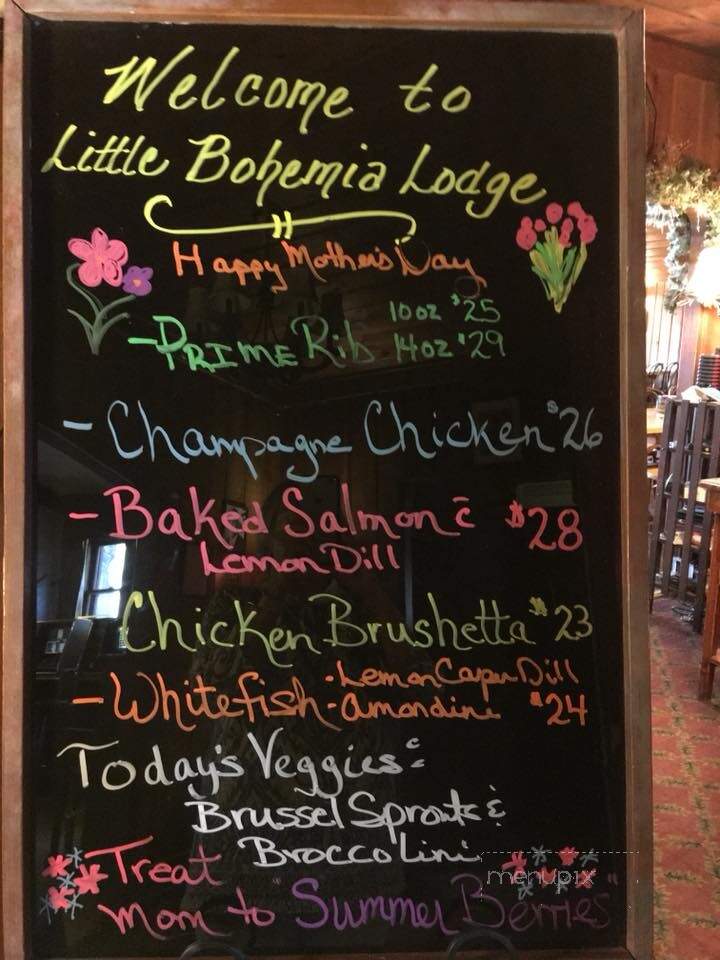 Welcome to
Little Bohemia Lodge
Happy Mother's Day
- PRIME Rib 10oz $25
14oz $29
- Champagne Chicken $26
- Baked Salmon c̄ $28
Lemon Dill
Chicken Brushetta $23
- Whitefish · Lemon Caper Dill
· amandine $24
Today's Veggies:
Brussel Sprouts &
Broccolini
Treat
menupix
mom to "Summer Berries"